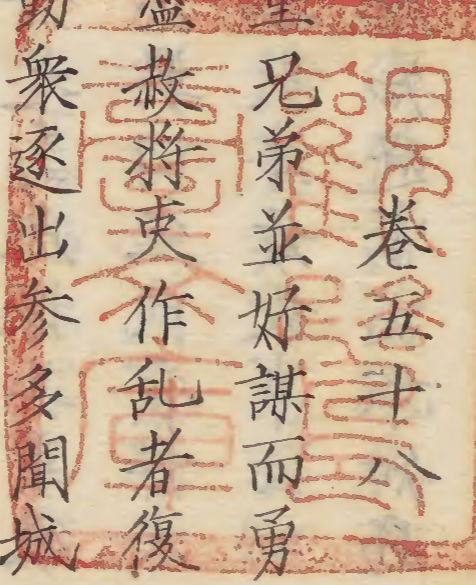 卷五十八
兄弟並好謀而勇
赦将吏作乱者復
衆逐出参多聞城